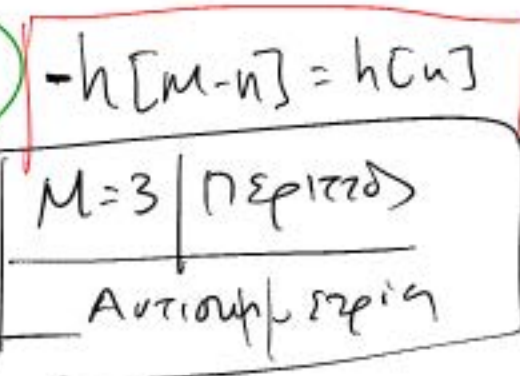 -h[M-n] = h[n]
M=3 | Περιττός
Αντισυμμετρία